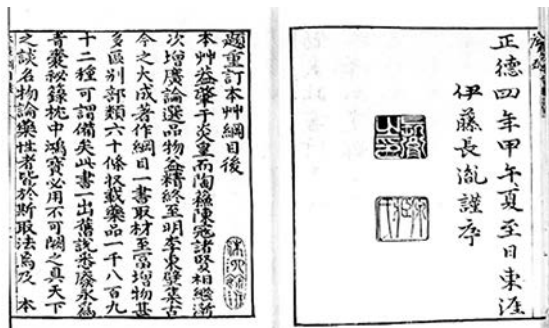 正德四年甲午夏至日東涯
伊藤長胤謹序
題重訂本艸綱目後
本艸益肇于炎皇而陶蘇陳寇諸賢相繼漸
次增廣論選品物益精終至明李東璧集古
今之大成著作綱目一書取材至富增物甚
多區別部類六十條収載藥品一千八百九
十二種可謂備矣此書一出舊說悉廢永爲
青囊祕錄枕中鴻寶必用不可闕之真天下
之談名物論藥性者皆於斯取法焉及 本